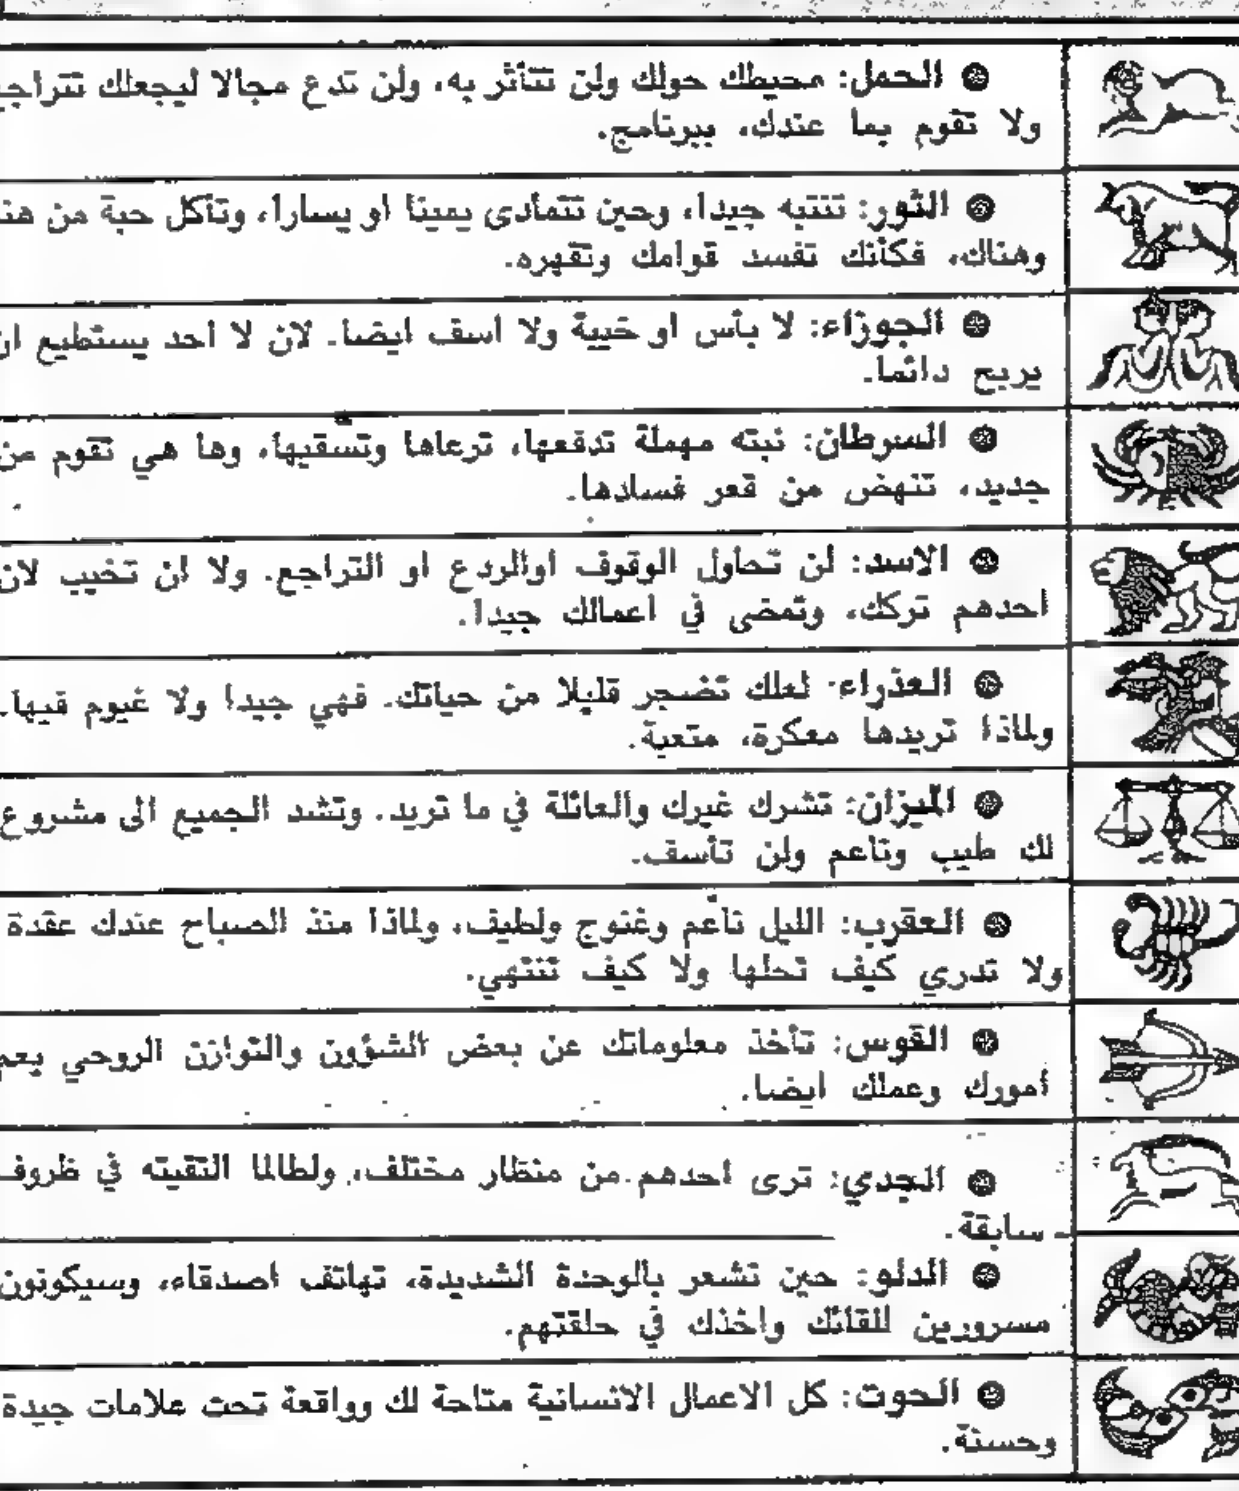 الحمل: محيطك حولك ولن تتأثر به، ولن تدع مجالا ليجعلك تتراجع
ولا تقوم بما عندك، ببرنامج.
الثور: تنتبه جيدا، وحين تتمادى يمينا او يسارا، وتأكل حبة من هنا
وهناك، فكأنك تفسد قوامك وتقهره.
الجوزاء: لا بأس او خيبة ولا اسف ايضا. لان لا احد يستطيع ان
يربح دائما.
السرطان: نبته مهملة تدفعها، ترعاها وتسقيها، وها هي تقوم من
جديد، تنهض من قعر فسادها.
الاسد: لن تحاول الوقوف اوالردع او التراجع. ولا ان تخيب لان
احدهم تركك، وتمضى في اعمالك جيدا.
العذراء: لعلك تضجر قليلا من حياتك. فهي جيدا ولا غيوم فيها.
ولماذا تريدها معكرة، متعبة.
الميزان: تشرك غيرك والعائلة في ما تريد. وتشد الجميع الى مشروع
لك طيب وناعم ولن تأسف.
العقرب: الليل ناعم وغنوج ولطيف، ولماذا منذ الصباح عندك عقدة
ولا تدري كيف تحلها ولا كيف تنتهي.
القوس: تأخذ معلوماتك عن بعض الشؤون والتوازن الروحي يعم
أمورك وعملك ايضا.
الجدي: ترى احدهم من منظار مختلف، ولطالما التقيته في ظروف
سابقة.
الدلو: حين تشعر بالوحدة الشديدة، تهاتف اصدقاء، وسيكونون
مسرورين للقائك واخذك في حلقتهم.
الحوت: كل الاعمال الانسانية متاحة لك وواقعة تحت علامات جيدة
وحسنة.